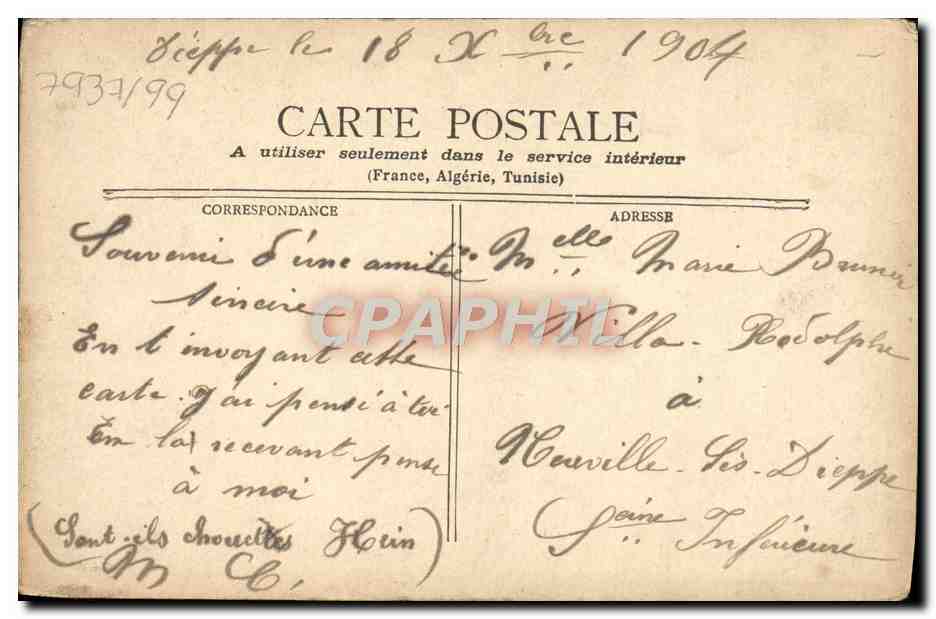 Dieppe le 18 Xbre 1904
7937/99
CARTE POSTALE
A utiliser seulement dans le service intérieur
(France, Algérie, Tunisie)
CORRESPONDANCE
Souvenir d'une amitié
sincire
En t invoyant cette
carte. J'ai pensé à toi
Em la recevant pense
à moi
(Sont-ils chouettes Hein)
M C.
ADRESSE
Melle Marie Brunier
Villa - Rodolphe
à
Neuville - Lès - Dieppe
Seine Inférieure
CPAPHIL